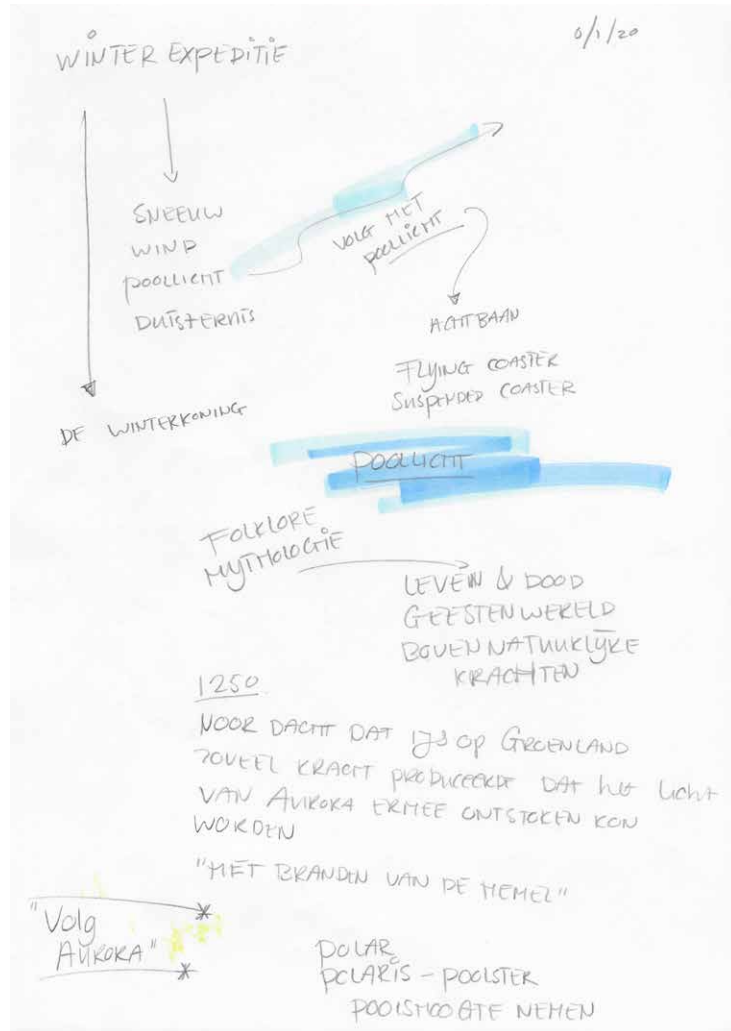 6/1/20
WINTER EXPEDITIE
SNEEUW
WIND
POOLLICHT
DUISTERNIS
VOLG HET
POOLLICHT
ACHTBAAN
FLYING COASTER
SUSPENDED COASTER
DE WINTERKONING
POOLLICHT
FOLKLORE
MYTHOLOGIE
LEVEN & DOOD
GEESTENWERELD
BOVENNATUURLIJKE
KRACHTEN
1250
NOOR DACHT DAT IJS OP GROENLAND
ZOVEEL KRACHT PRODUCEERDE DAT het licht
VAN AURORA ERMEE ONTSTOKEN KON
WORDEN
"HET BRANDEN VAN DE HEMEL"
"Volg
AURORA"
POLAR
POLARIS - POOLSTER
POOLSHOOGTE NEMEN